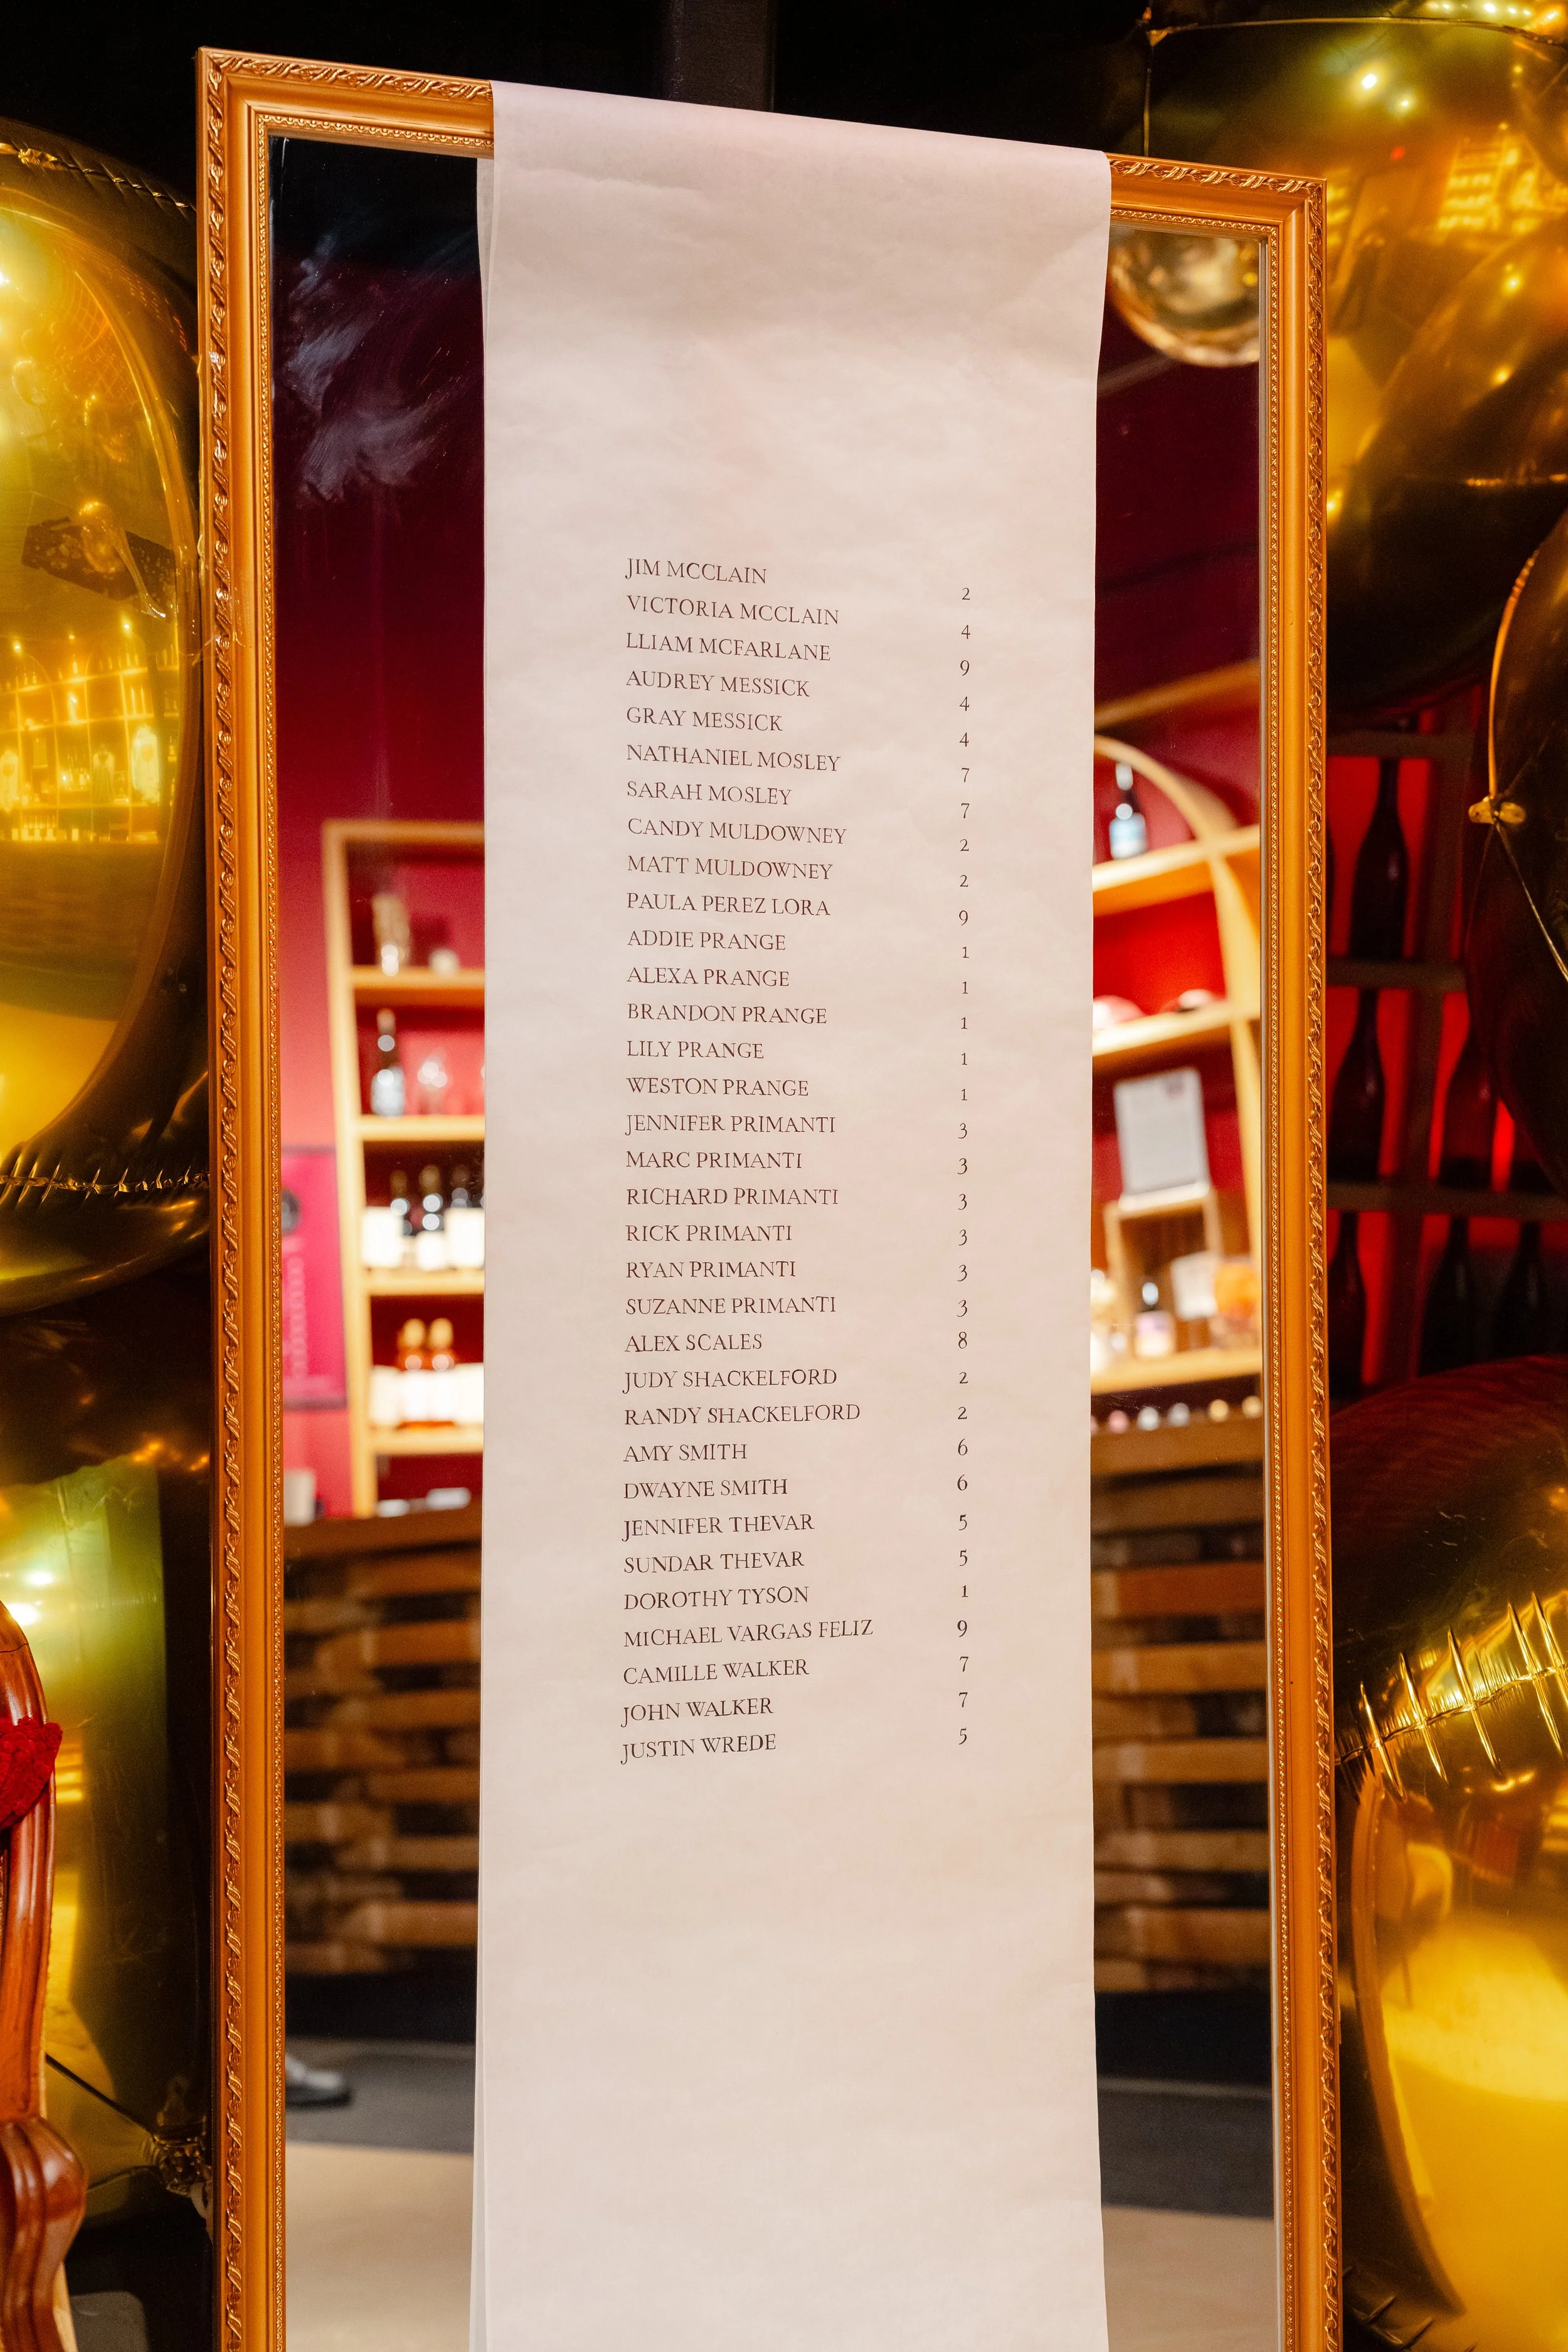 JIM MCCLAIN 2
VICTORIA MCCLAIN 4
LLIAM MCFARLANE 9
AUDREY MESSICK 4
GRAY MESSICK 4
NATHANIEL MOSLEY 7
SARAH MOSLEY 7
CANDY MULDOWNEY 2
MATT MULDOWNEY 2
PAULA PEREZ LORA 9
ADDIE PRANGE 1
ALEXA PRANGE 1
BRANDON PRANGE 1
LILY PRANGE 1
WESTON PRANGE 1
JENNIFER PRIMANTI 3
MARC PRIMANTI 3
RICHARD PRIMANTI 3
RICK PRIMANTI 3
RYAN PRIMANTI 3
SUZANNE PRIMANTI 3
ALEX SCALES 8
JUDY SHACKELFORD 2
RANDY SHACKELFORD 2
AMY SMITH 6
DWAYNE SMITH 6
JENNIFER THEVAR 5
SUNDAR THEVAR 5
DOROTHY TYSON 1
MICHAEL VARGAS FELIZ 9
CAMILLE WALKER 7
JOHN WALKER 7
JUSTIN WREDE 5